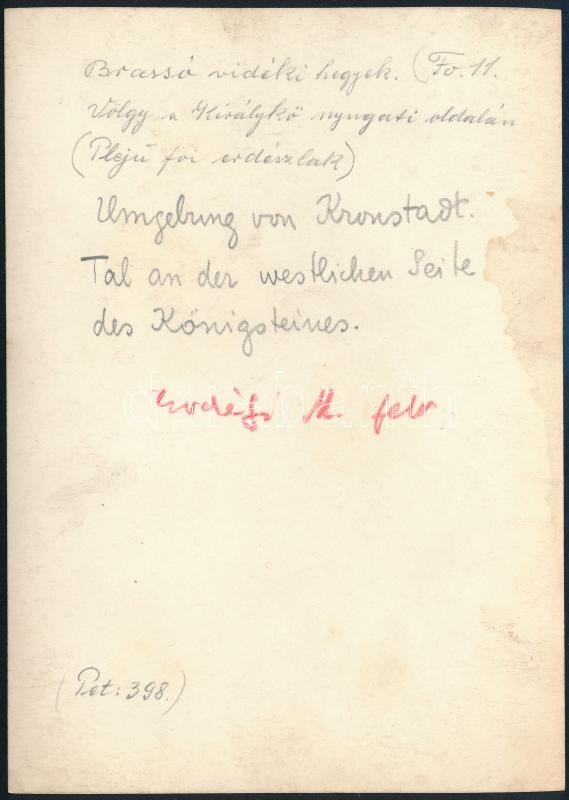 Brassó vidéki hegyek. (Fo. 11.
Völgy a Királykö nyugati oldalán
(Plejú foi erdészlak)
Umgebung von Kronstadt.
Tal an der westlichen Seite
des Königsteines.
M. felv
(Pet: 398.)